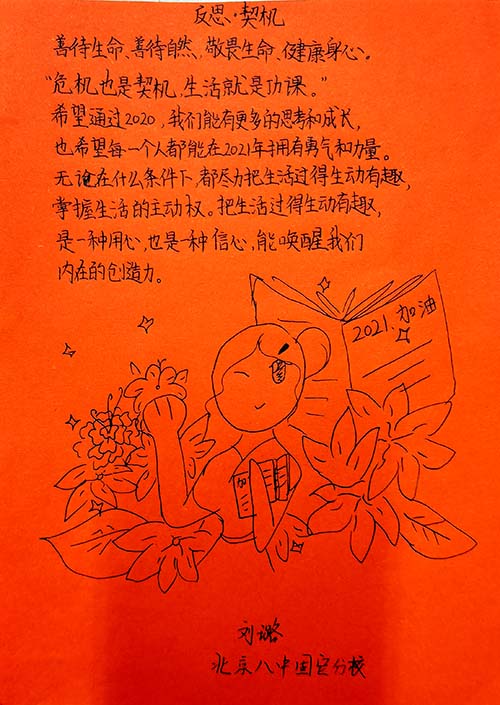 反思·契机
善待生命、善待自然,敬畏生命、健康身心。
“危机也是契机,生活就是功课。”
希望通过2020,我们能有更多的思考和成长,
也希望每一个人都能在2021年拥有勇气和力量。
无论在什么条件下,都尽力把生活过得生动有趣,
掌握生活的主动权。把生活过得生动有趣,
是一种用心,也是一种信心,能唤醒我们
内在的创造力。
2021.加油
刘璐
北京八中固安分校